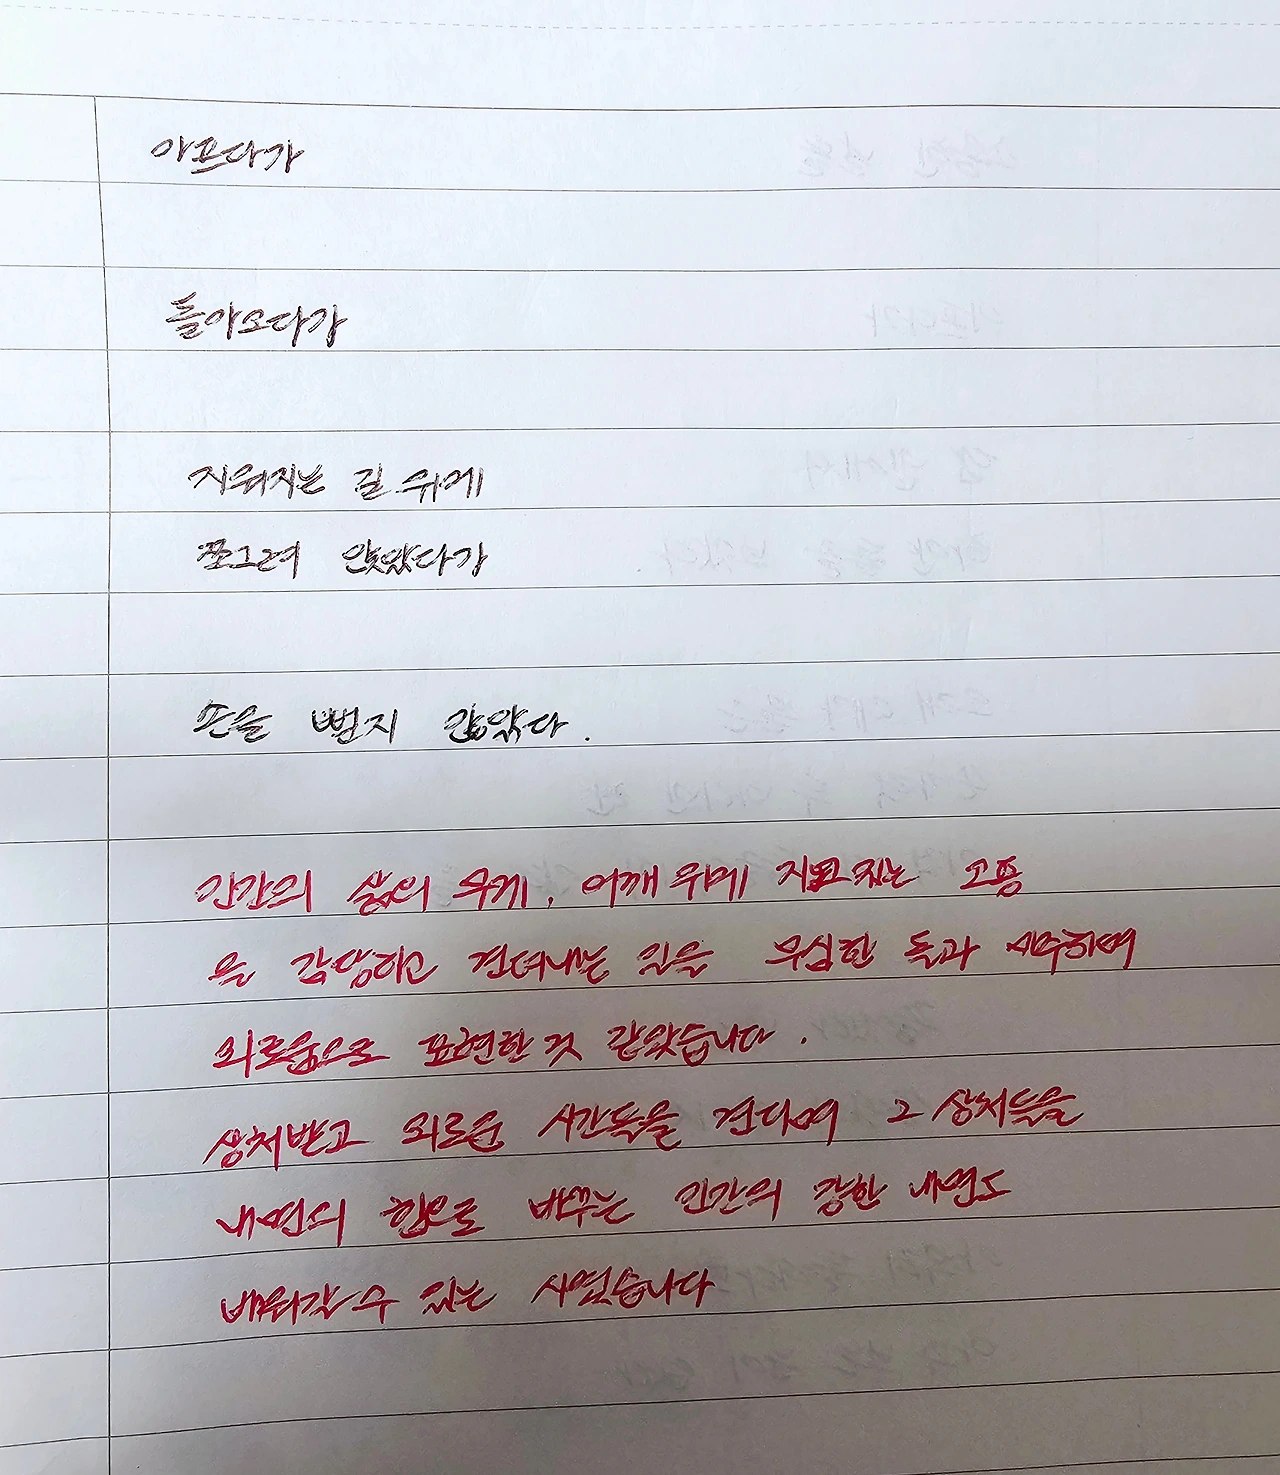 아프다가
돌아오다가
지워지는 길 위에
쪼그려 앉았다가
손을 뻗지 않았다.
인간의 삶의 무게, 어깨 위에 지고 있는 고통
을 감당하고 견뎌내는 일을 무심한 돌과 비유하며
외로움으로 표현한 것 같았습니다.
상처받고 외로운 시간들을 견디며 그 상처들을
내면의 힘으로 바꾸는 인간의 강한 내면도
배워갈 수 있는 시였습니다